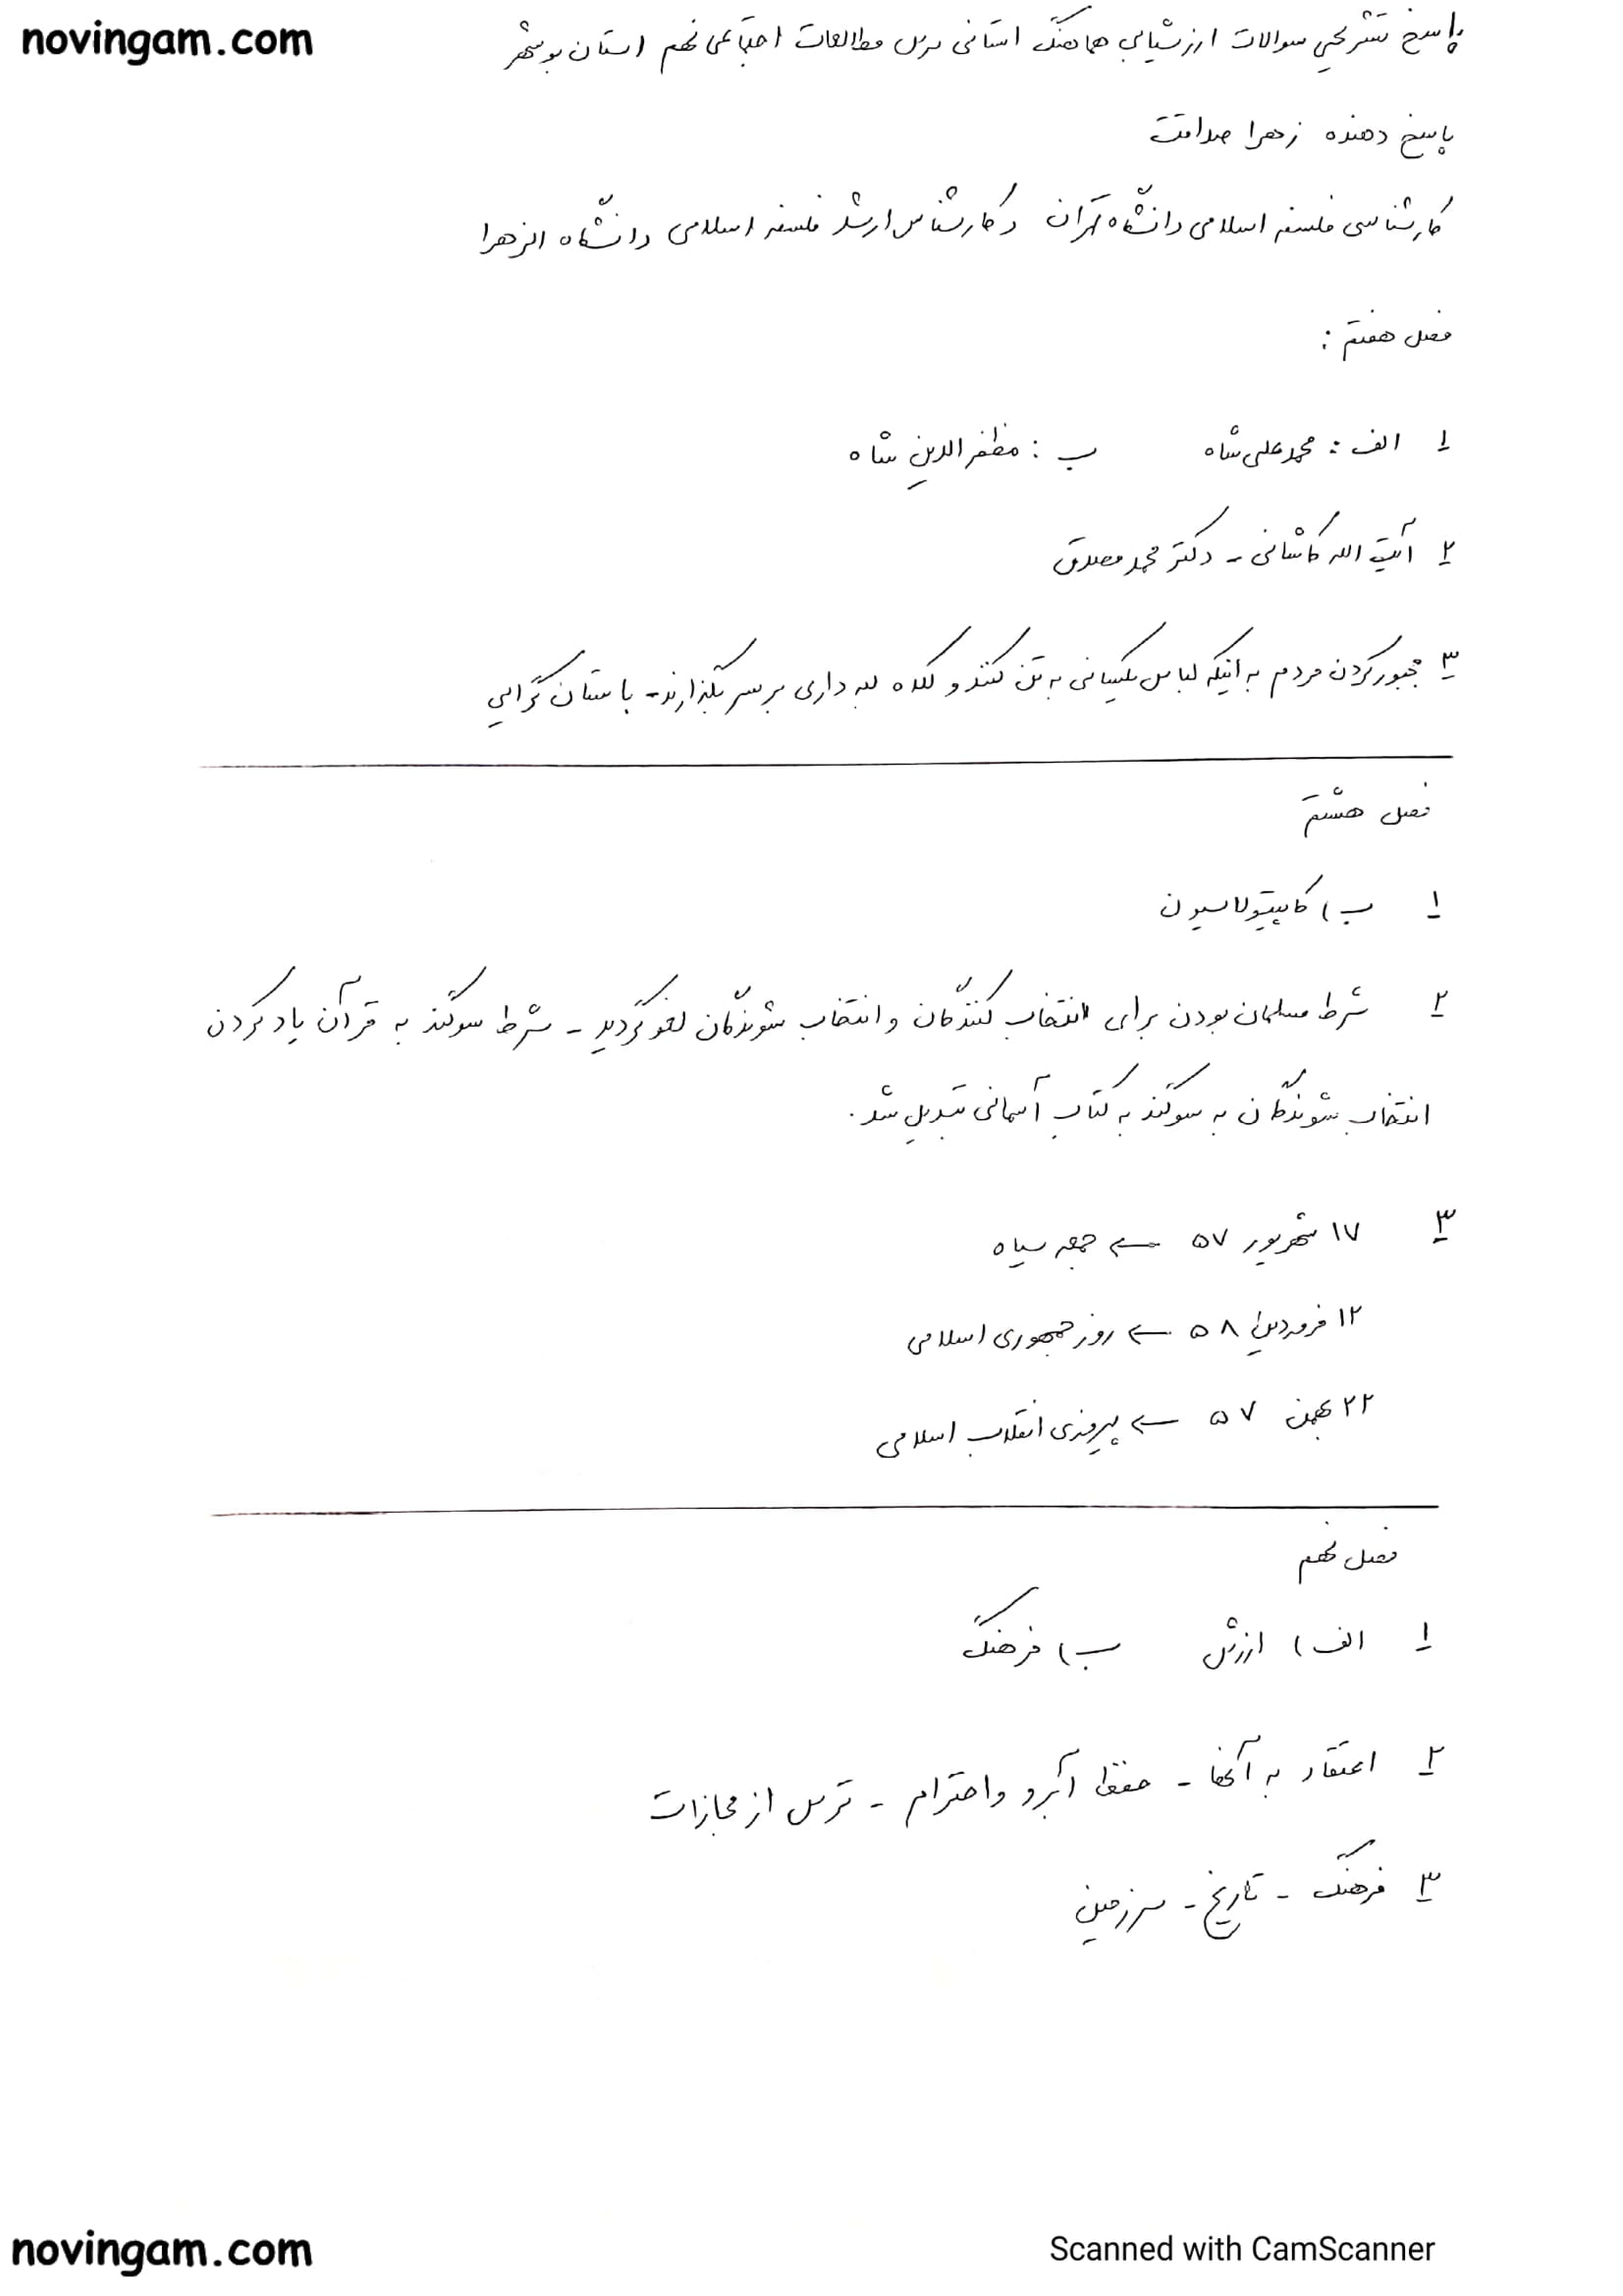 novingam.com
پاسخ تشریحی سوالات ارزشیابی هماهنگ استانی درس مطالعات اجتماعی نهم استان بوشهر
پاسخ دهنده زهرا صداقت
کارشناسی فلسفه اسلامی دانشگاه تهران و کارشناس ارشد فلسفه اسلامی دانشگاه الزهرا
فصل هفتم :
۱ الف : محمدعلی شاه ب : مظفرالدین شاه
۲ آیت الله کاشانی - دکتر محمد مصدق
۳ مجبور کردن مردم به اینکه لباس یکسانی به تن کنند و کلاه لبه داری بر سر بگذارند - باستان گرایی
فصل هشتم
۱ ب) کاپیتولاسیون
۲ شرط مسلمان بودن برای انتخاب کنندگان و انتخاب شوندگان لغو گردید - شرط سوگند به قرآن یاد کردن
انتخاب شوندگان به سوگند به کتاب آسمانی تبدیل شد.
۳ ۱۷ شهریور ۵۷ ← جمعه سیاه
۱۲ فروردین ۵۸ ← روز جمهوری اسلامی
۲۲ بهمن ۵۷ ← پیروزی انقلاب اسلامی
فصل نهم
۱ الف) ارزش ب) فرهنگ
۲ اعتقاد به آنها - حفظ آبرو و احترام - ترس از مجازات
۳ فرهنگ - تاریخ - سرزمین
novingam.com
Scanned with CamScanner